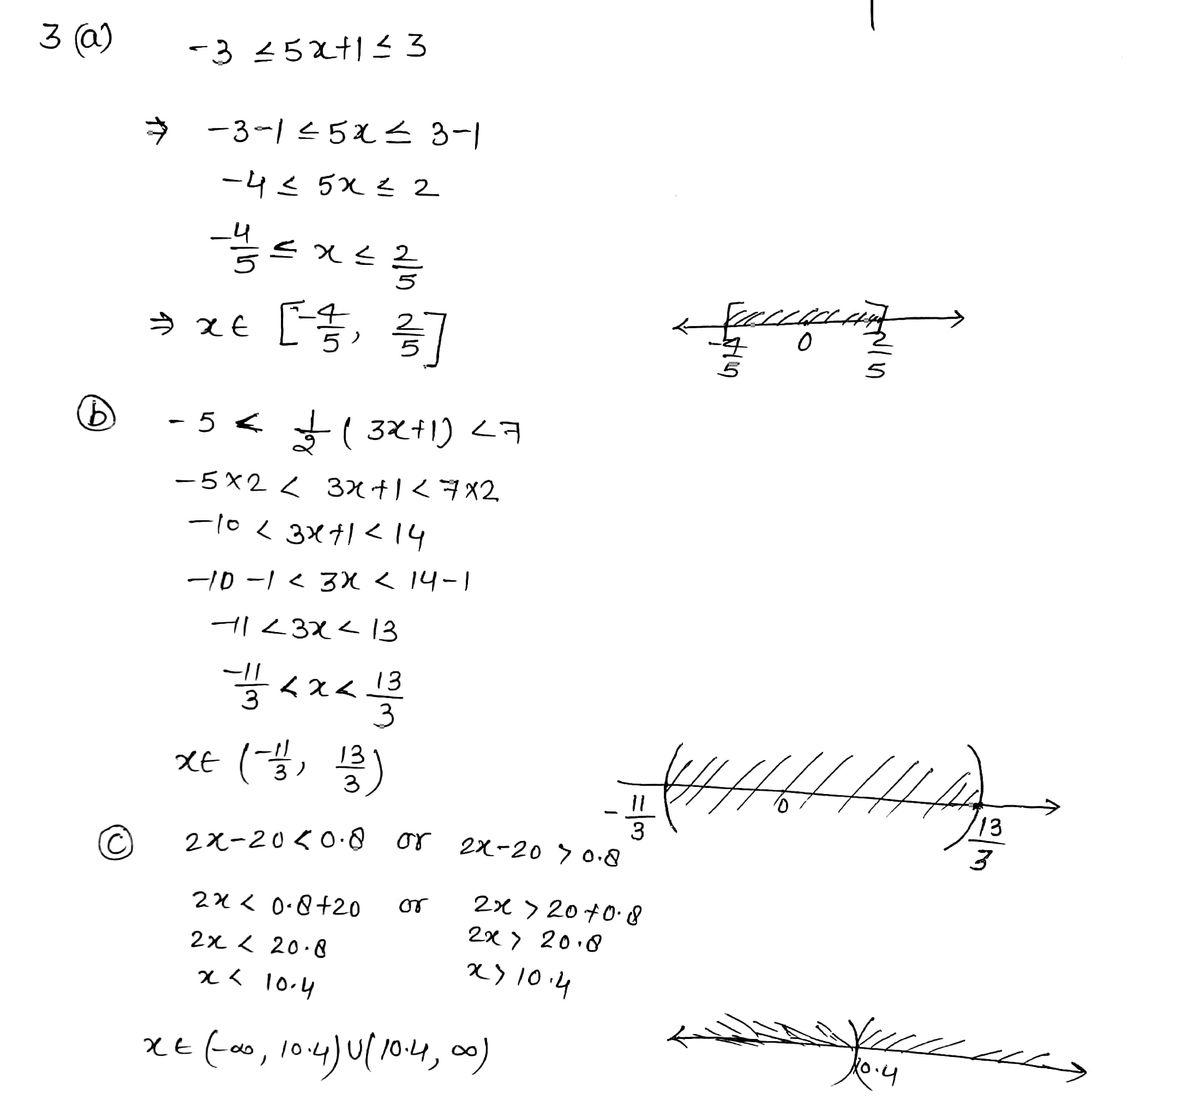 3 (a) -3 ≤ 5x+1 ≤ 3
⇒ -3-1 ≤ 5x ≤ 3-1
-4 ≤ 5x ≤ 2
-4/5 ≤ x ≤ 2/5
⇒ x ∈ [-4/5, 2/5]
-4/5 0 2/5
(b) -5 < 1/2 (3x+1) < 7
-5×2 < 3x+1 < 7×2
-10 < 3x+1 < 14
-10-1 < 3x < 14-1
-11 < 3x < 13
-11/3 < x < 13/3
x∈ (-11/3, 13/3)
-11/3 0 13/3
(c) 2x-20 < 0.8 or 2x-20 > 0.8
2x < 0.8+20 or 2x > 20+0.8
2x < 20.8 2x > 20.8
x < 10.4 x > 10.4
x ∈ (-∞, 10.4) ∪ (10.4, ∞)
10.4